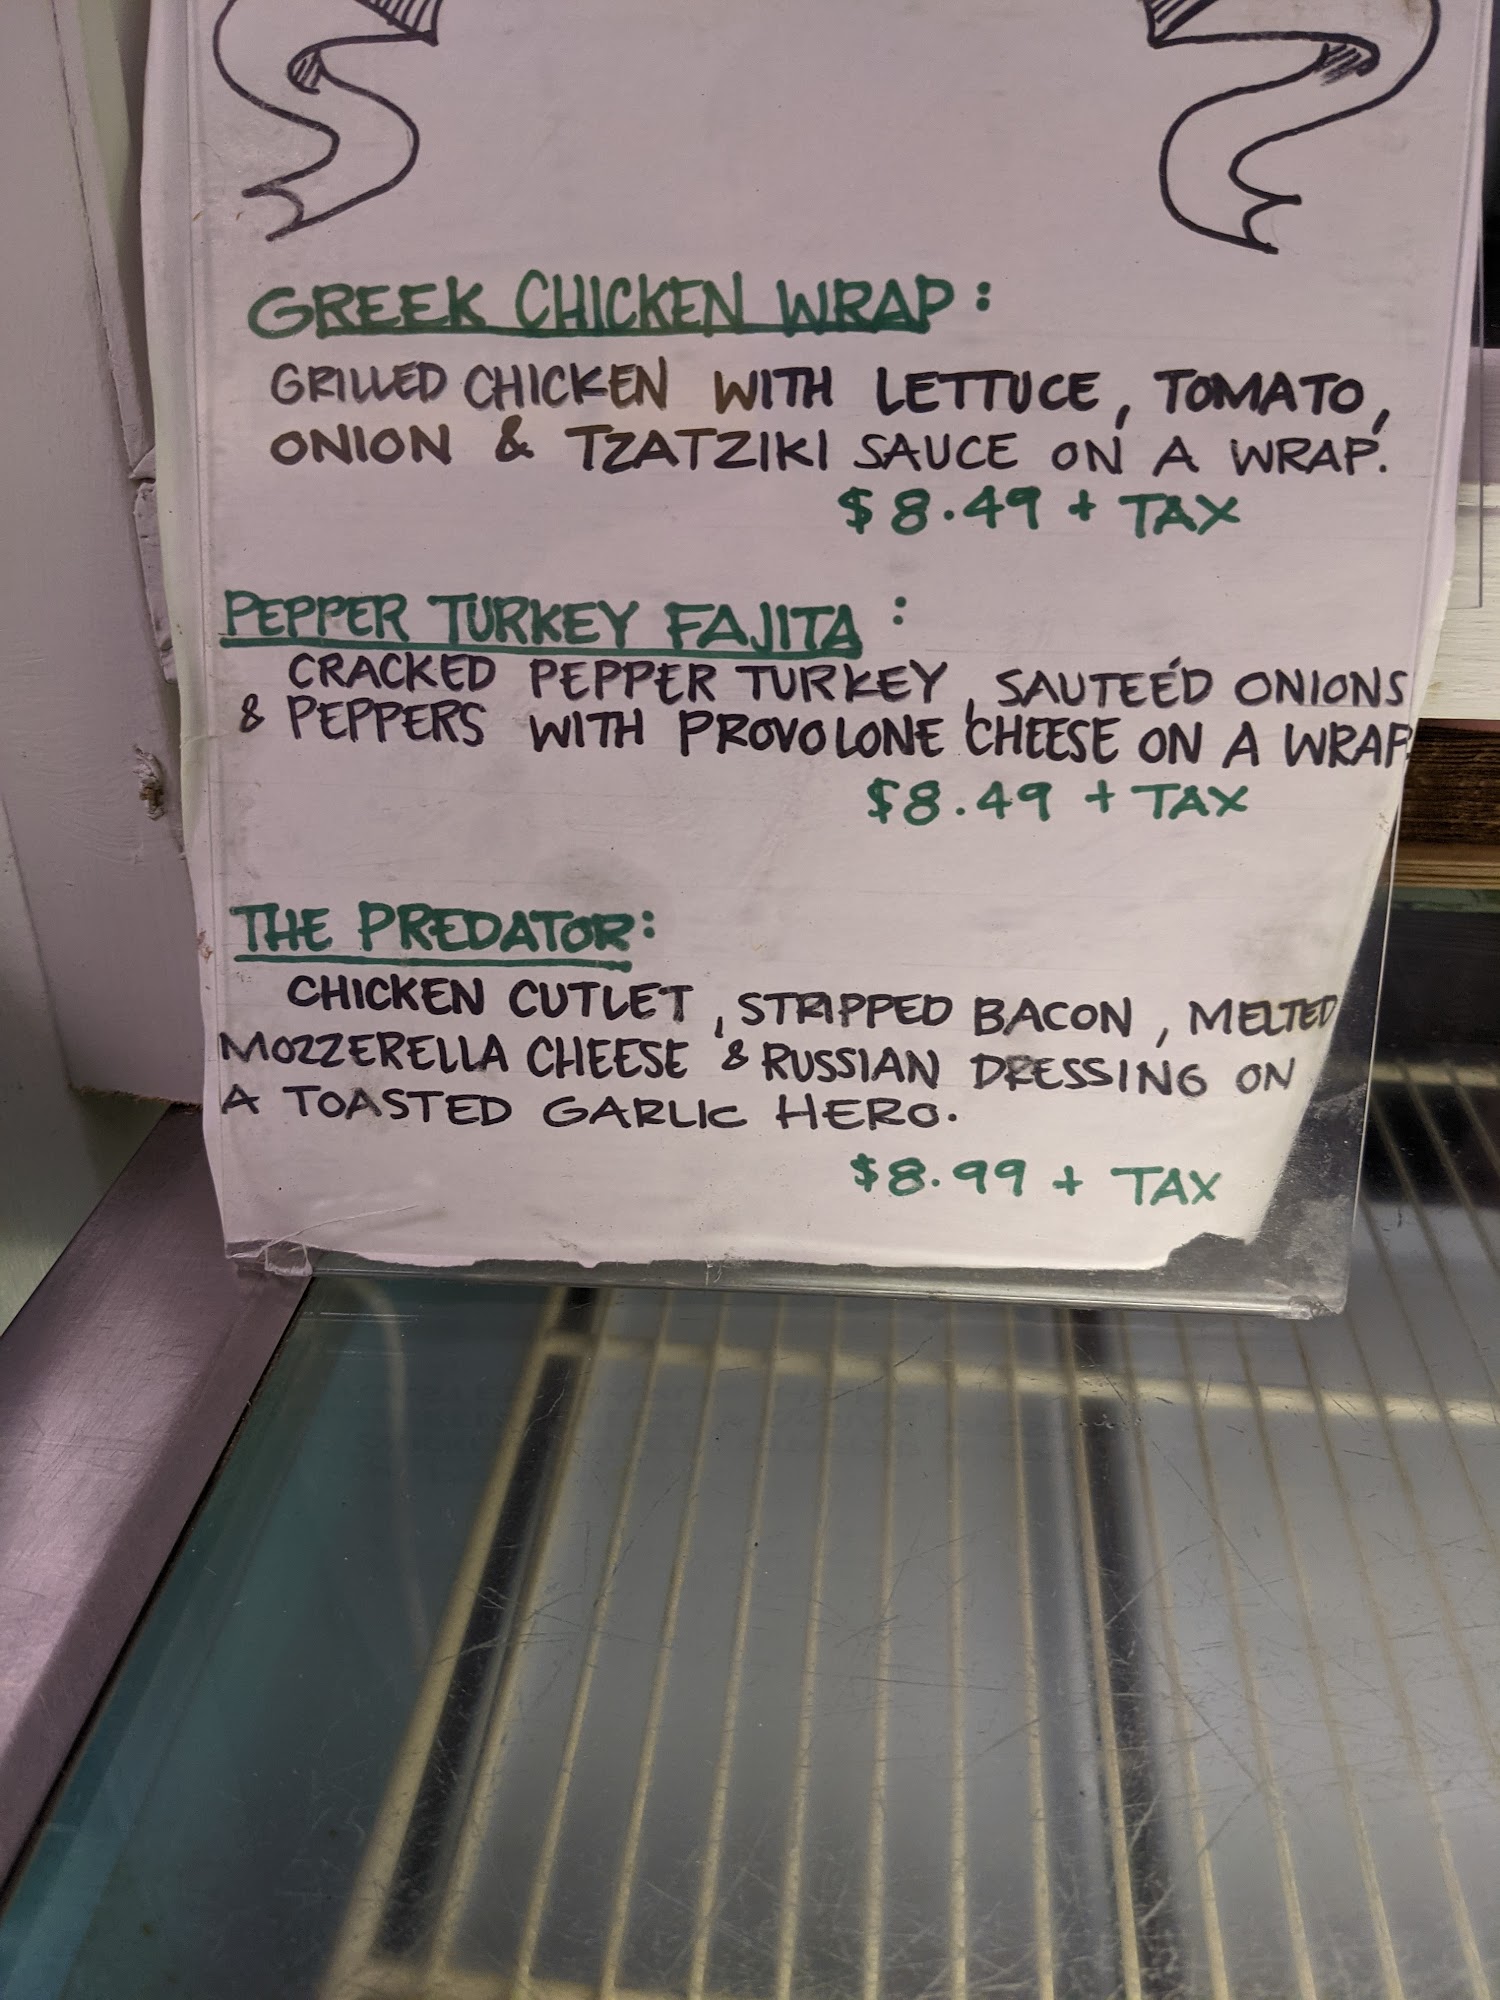 GREEK CHICKEN WRAP:
GRILLED CHICKEN WITH LETTUCE, TOMATO,
ONION & TZATZIKI SAUCE ON A WRAP.
$8.49 + TAX
PEPPER TURKEY FAJITA:
CRACKED PEPPER TURKEY, SAUTEÉD ONIONS
& PEPPERS WITH PROVOLONE CHEESE ON A WRAP.
$8.49 + TAX
THE PREDATOR:
CHICKEN CUTLET, STRIPPED BACON, MELTED
MOZZERELLA CHEESE & RUSSIAN DRESSING ON
A TOASTED GARLIC HERO.
$8.99 + TAX